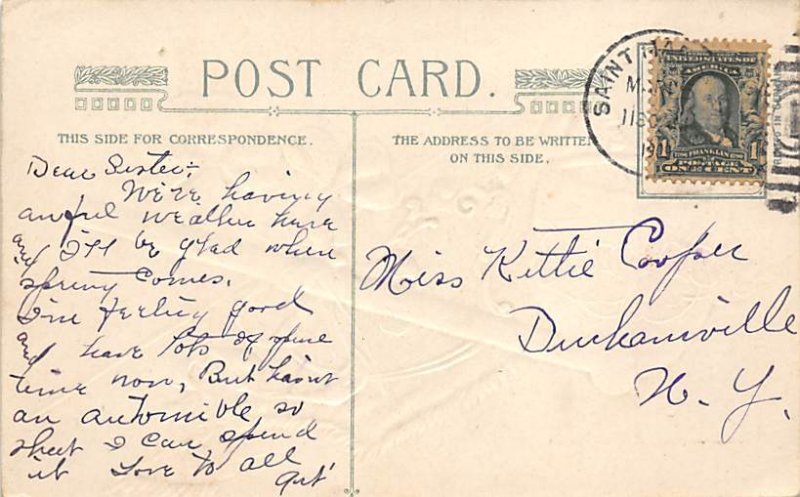 POST CARD.
THIS SIDE FOR CORRESPONDENCE.
THE ADDRESS TO BE WRITTEN
ON THIS SIDE.
SAINT
UNITED STATES OF
AMERICA
1 FRANKLIN 1
POSTAGE
ONE CENT
Dear Sister;-
We're having
awful weather here
and I'll be glad when
spring comes.
I'm feeling good
and have lots of spare
time now, But havn't
an automible so
that I can spend
it Love to all
Miss Kittie Cooper
N. Y.